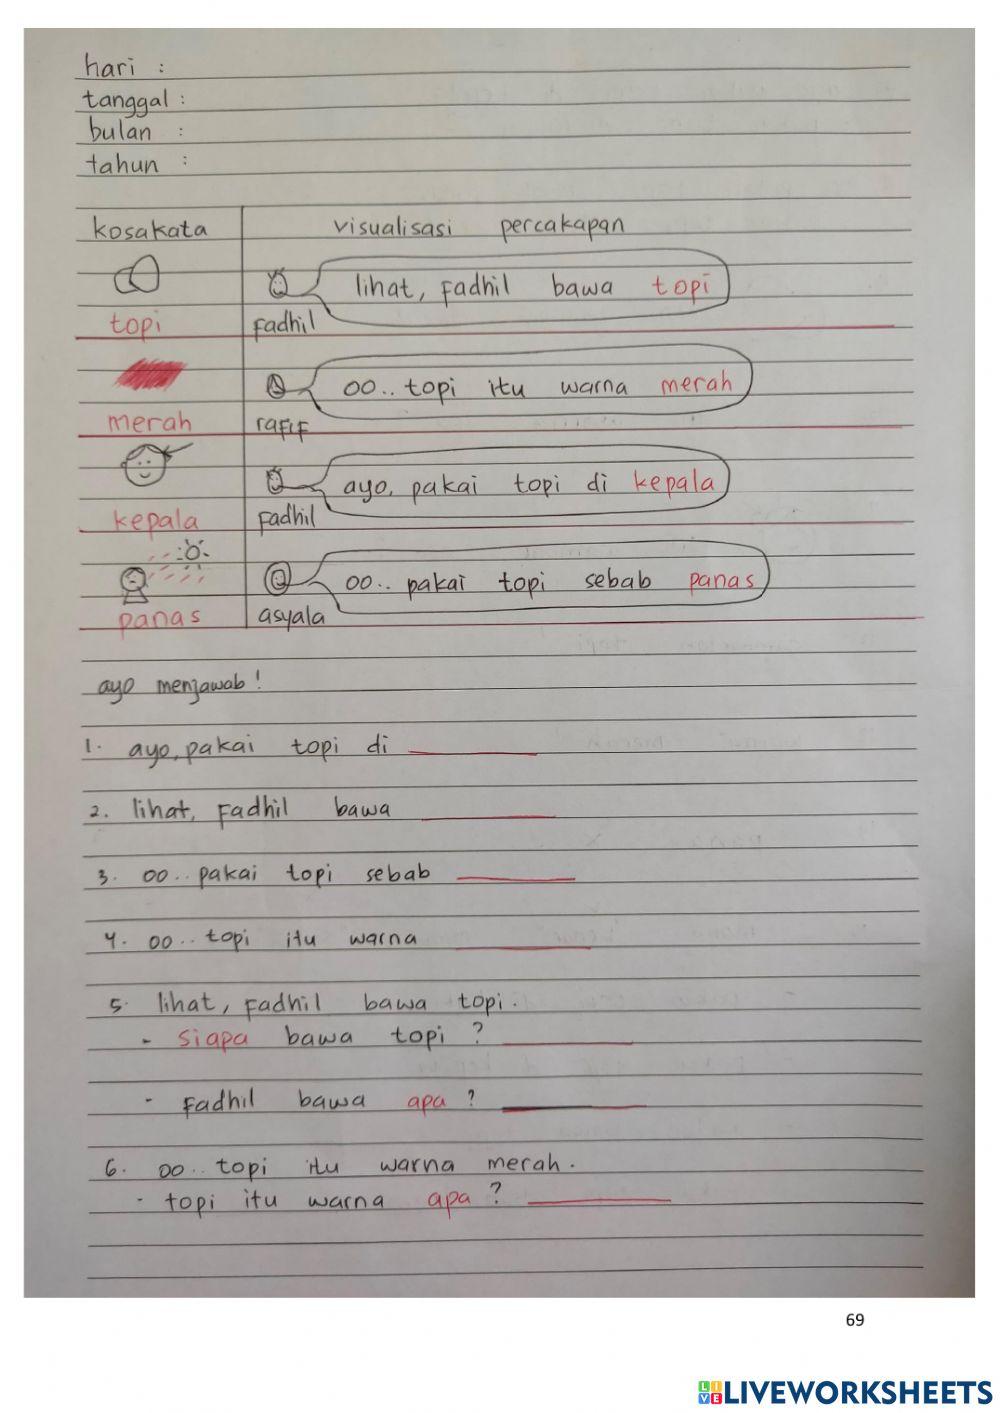 hari :
tanggal :
bulan :
tahun :
kosakata visualisasi percakapan
lihat, fadhil bawa topi
topi fadhil
oo.. topi itu warna merah
merah rafif
ayo, pakai topi di kepala
kepala fadhil
oo.. pakai topi sebab panas
panas asyala
ayo menjawab !
1. ayo, pakai topi di
2. lihat, fadhil bawa
3. oo.. pakai topi sebab
4. oo.. topi itu warna
5. lihat, fadhil bawa topi.
- siapa bawa topi ?
- fadhil bawa apa ?
6. oo.. topi itu warna merah.
- topi itu warna apa ?
69
LIVE LIVEWORKSHEETS